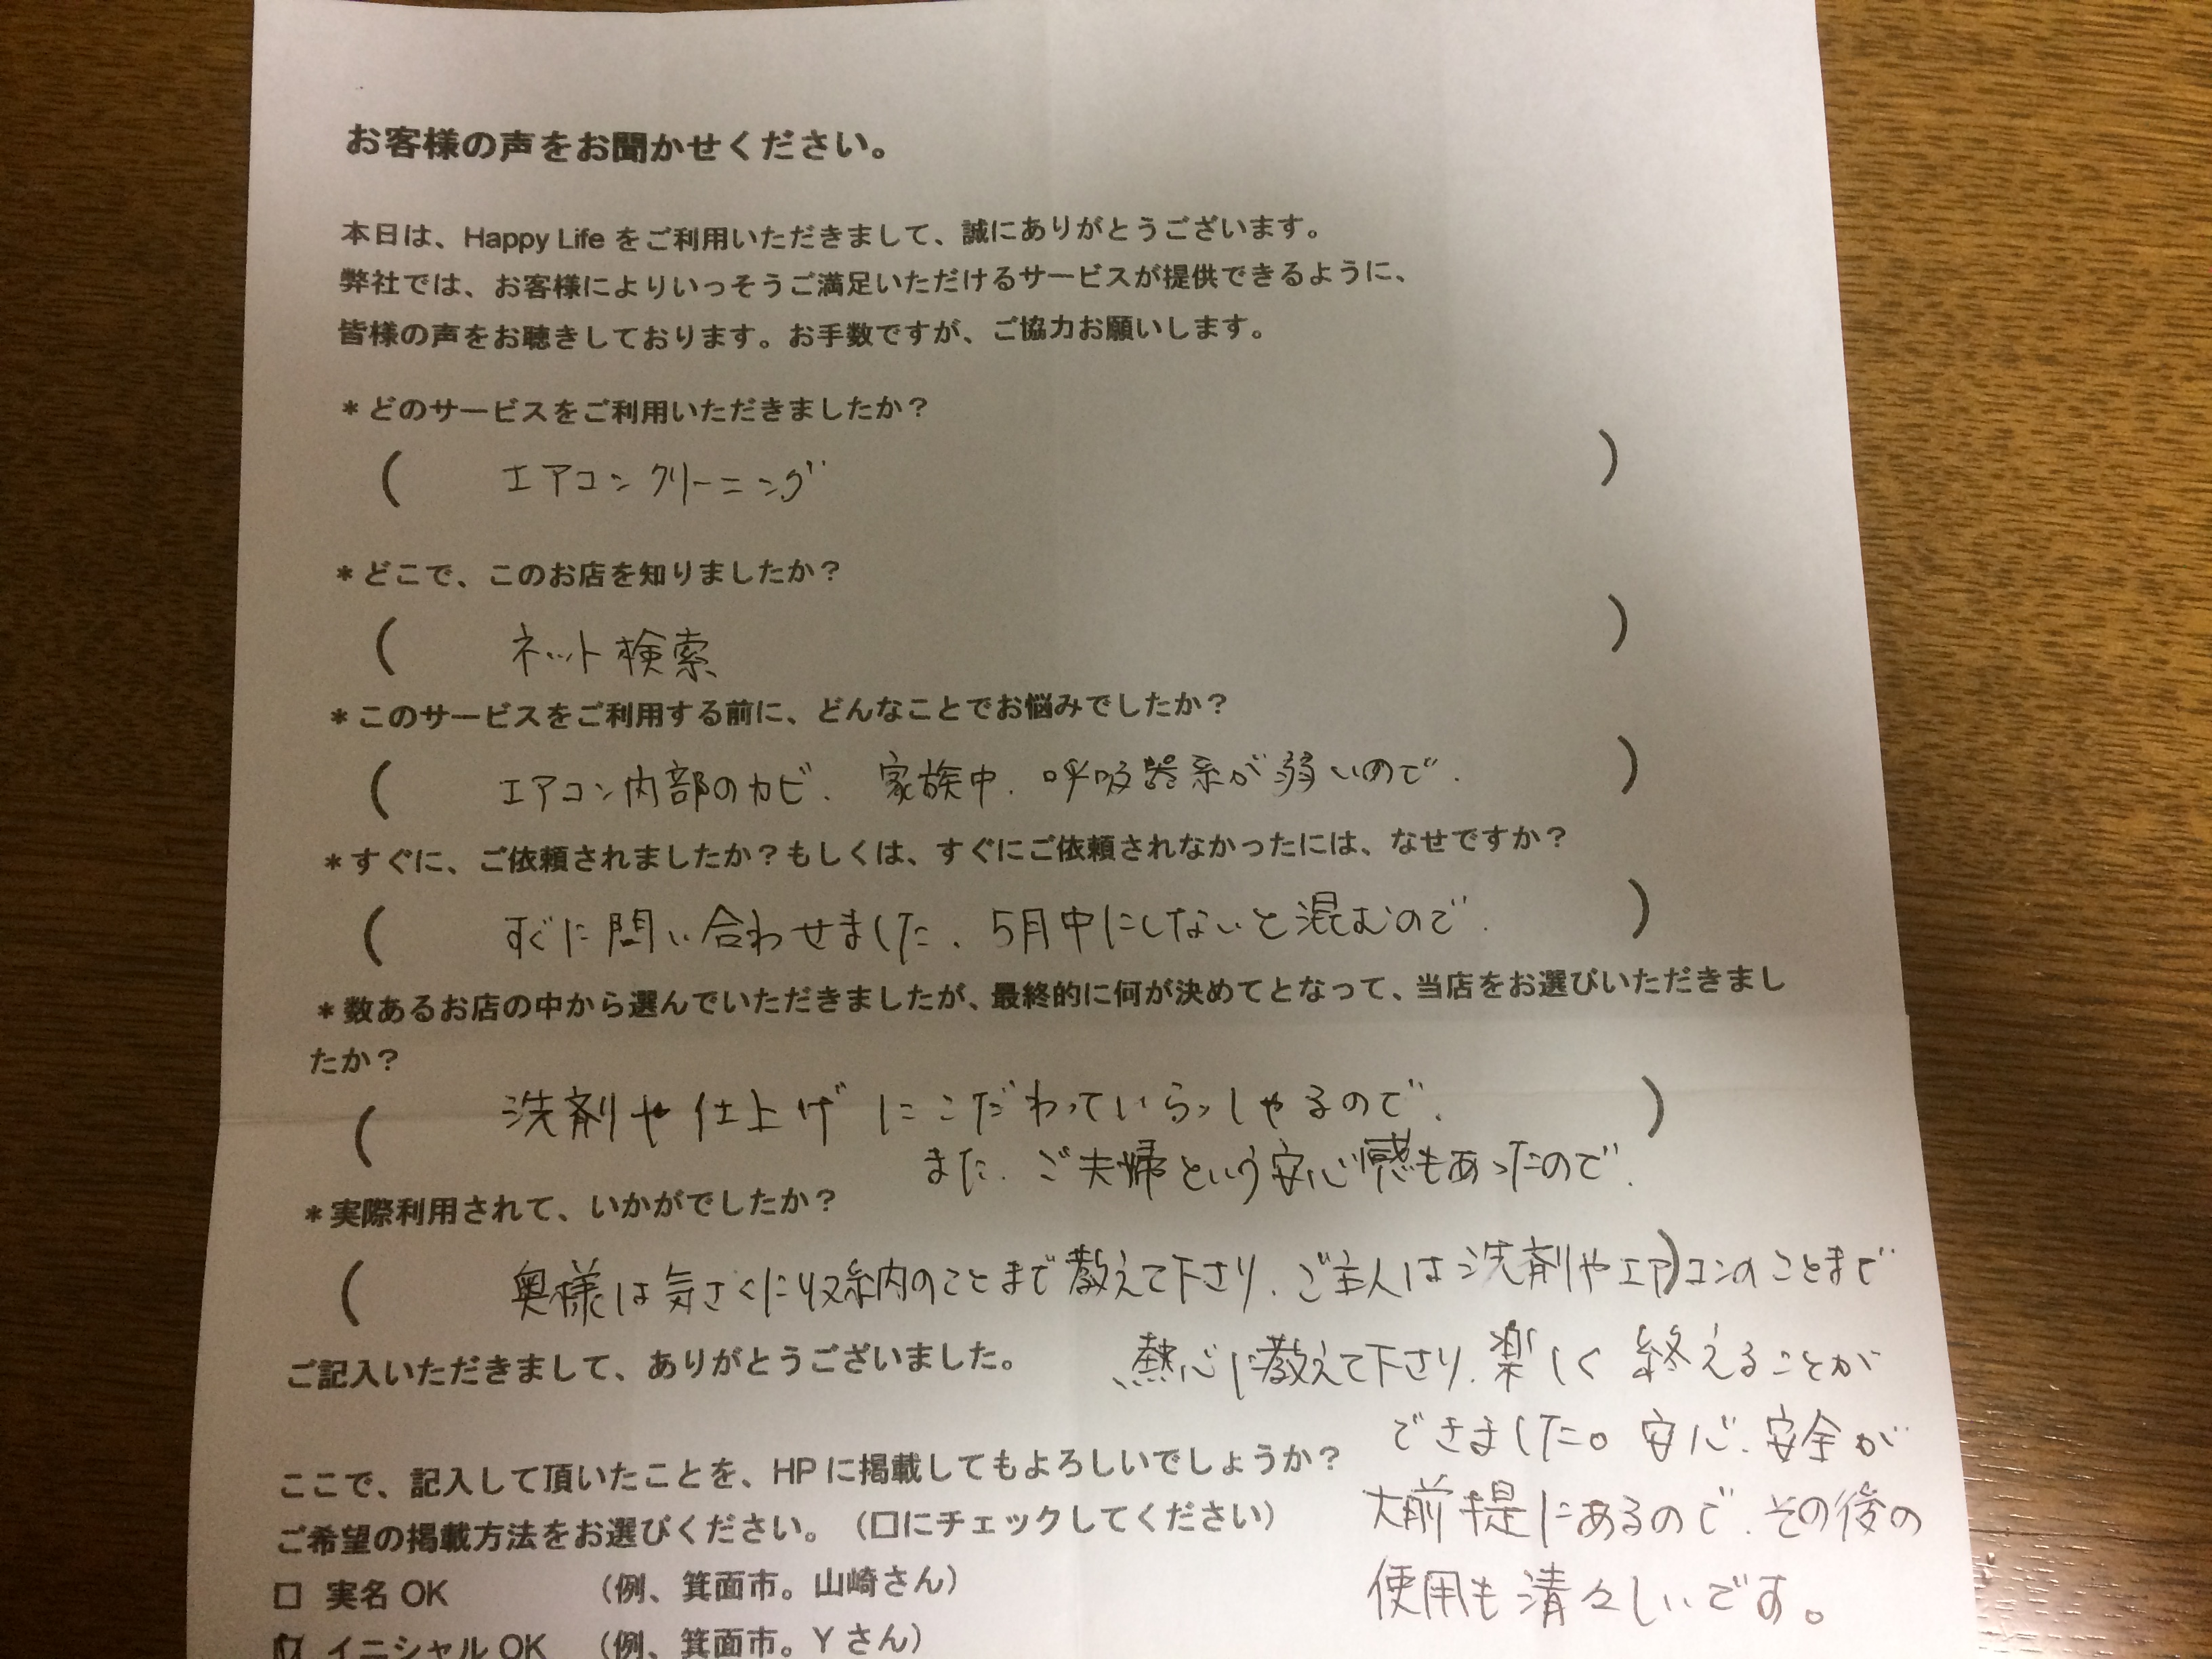 お客様の声をお聞かせください。
本日は、Happy Life をご利用いただきまして、誠にありがとうございます。
弊社では、お客様によりいっそうご満足いただけるサービスが提供できるように、
皆様の声をお聴きしております。お手数ですが、ご協力お願いします。
＊どのサービスをご利用いただきましたか？
（ エアコンクリーニング ）
＊どこで、このお店を知りましたか？
（ ネット検索 ）
＊このサービスをご利用する前に、どんなことでお悩みでしたか？
（ エアコン内部のカビ、家族中、呼吸器系が弱いので、 ）
＊すぐに、ご依頼されましたか？もしくは、すぐにご依頼されなかったには、なせですか？
（ すぐに問い合わせました、5月中にしないと混むので、 ）
＊数あるお店の中から選んでいただきましたが、最終的に何が決めてとなって、当店をお選びいただきまし
たか？
（ 洗剤や仕上げにこだわっていらっしゃるので、 ）
また、ご夫婦という安心感もあったので、
＊実際利用されて、いかがでしたか？
（ 奥様は気さくに収納のことまで教えて下さり、ご主人は洗剤やエア）コンのことまで
熱心に教えて下さり、楽しく終えることが
できました。安心、安全が
大前提にあるので、その後の
使用も清々しいです。
ご記入いただきまして、ありがとうございました。
ここで、記入して頂いたことを、HP に掲載してもよろしいでしょうか？
ご希望の掲載方法をお選びください。（口にチェックしてください）
□ 実名 OK （例、箕面市。山崎さん）
☑ イニシャル OK （例、箕面市。Y さん）